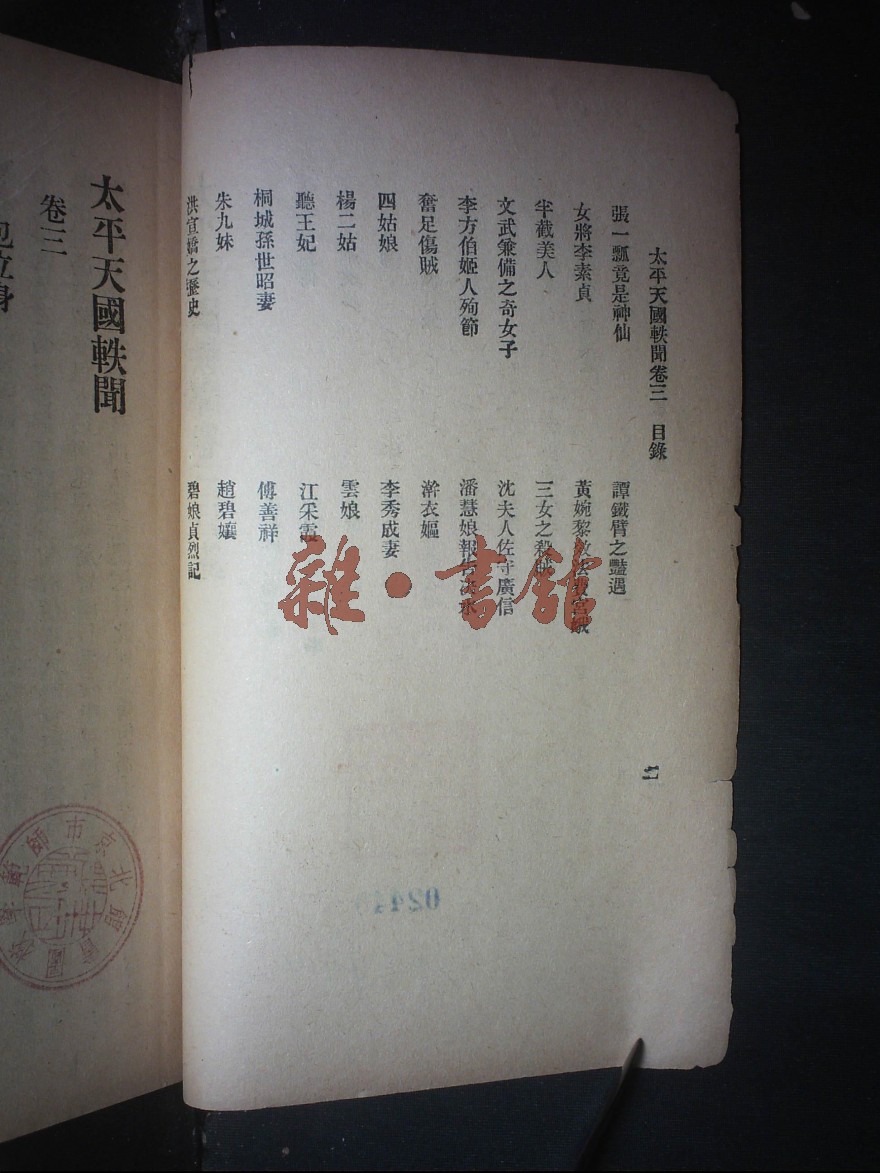 太平天國軼聞卷三 目錄
張一瓢竟是神仙
譚鐵臂之豔遇
女將李素貞
黃婉黎
半截美人
三女之殺賊
文武兼備之奇女子
沈夫人佐守廣信
李方伯姬人殉節
潘慧娘報仇決水
奮足傷賊
澣衣嫗
四姑娘
李秀成妻
楊二姑
雲娘
聽王妃
江采霞
桐城孫世昭妻
傅善祥
朱九妹
趙碧孃
洪宣嬌之歷史
碧娘貞烈記
太平天國軼聞
卷三
包立身
雜·書館